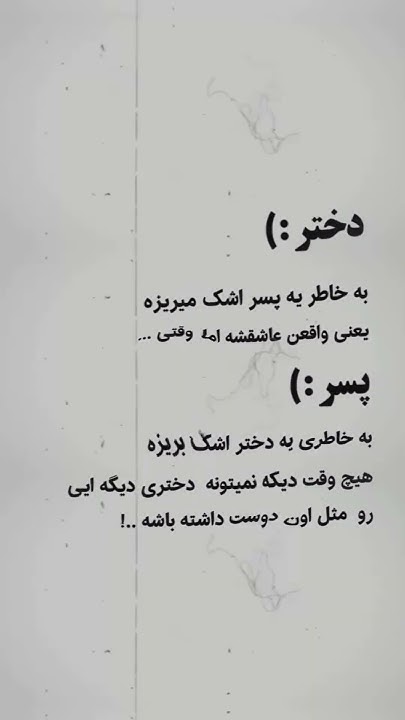 دختر :)
به خاطر یه پسر اشک میریزه
یعنی واقعن عاشقشه اما وقتی ...
پسر :)
به خاطری یه دختر اشک بریزه
هیچ وقت دیکه نمیتونه دختری دیگه ایی
رو مثل اون دوست داشته باشه ..!